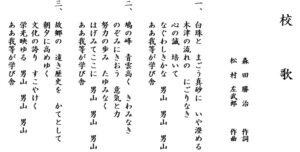 校歌
森田勝治 作詞
松村左武郎 作曲
一、白珠と まごう真砂に いや澄める
木津の流れの にごりなき
心の誠 培いて
なくわしきかな 男山 男山
ああ我等が学び舎
二、鳩の峰 青雲高く きわみなき
のぞみにきおう 意気と力
努力の歩み たゆみなく
はげみてここに 男山 男山
ああ我等が学び舎
三、故郷の 遠き歴史を かてとして
朝夕に高めゆく
文化の誇り すこやけく
栄光映ゆる 男山 男山
ああ我等が学び舎